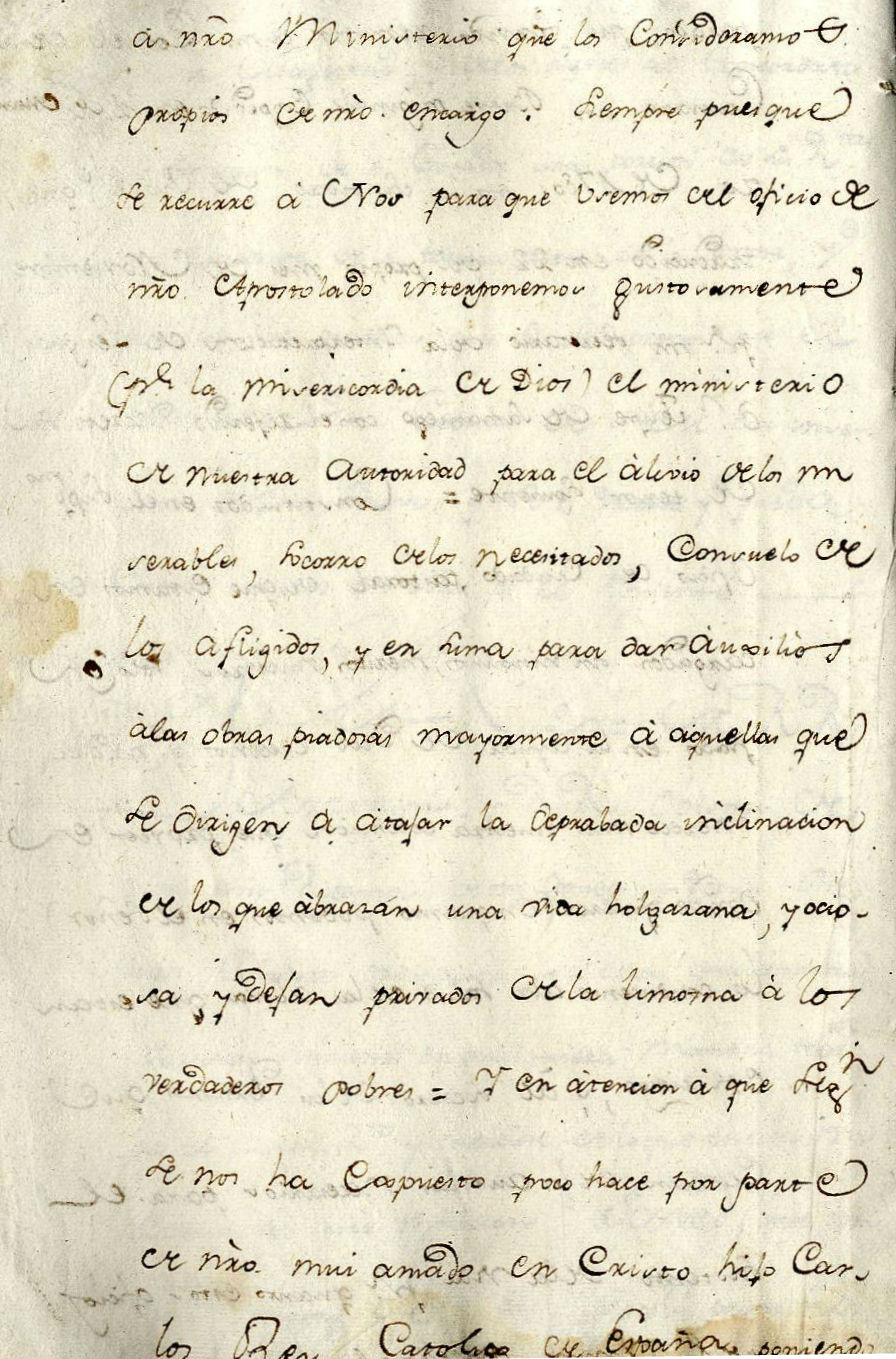 a nrõ Ministerio que los Consideramos
propios de nrõ. encargo. Siempre pues que
se recurre à Nos para que usemos del oficio de
nrõ. Apostolado interponemos gustosamente
(pr. la Misericordia de Dios) el ministerio
de nuestra Autoridad para el àlivio delos mi
=
serables, socorro delos necesitados, Consuelo de
los afligidos, y en suma para dar àuxilios
àlas obras piadosas mayormente à aquellas que
se dirigen à atajar la deprabada inclinacion
de los que àbrazan una vida holgazana, y ocio-
sa, y dejan privados dela limosna à los
verdaderos pobres = Y en àtencion à que segn
se nos ha Expuesto poco hace por parte
de nrõ. mui amado en Cristo hijo Car-
los Rey Catolico de España, poniendo